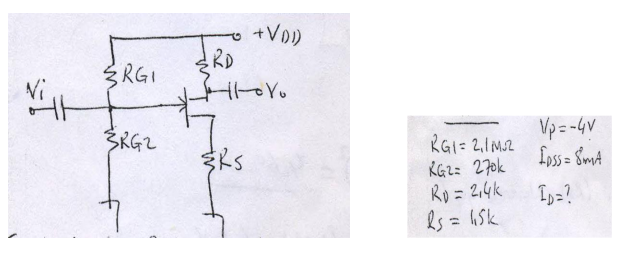 +VDD
RD
RG1
Vi
Vo
RG2
RS
RG1 = 2,1MΩ
RG2 = 270k
RD = 2,4k
RS = 1,5k
Vp = -4V
IDSS = 8mA
ID = ?